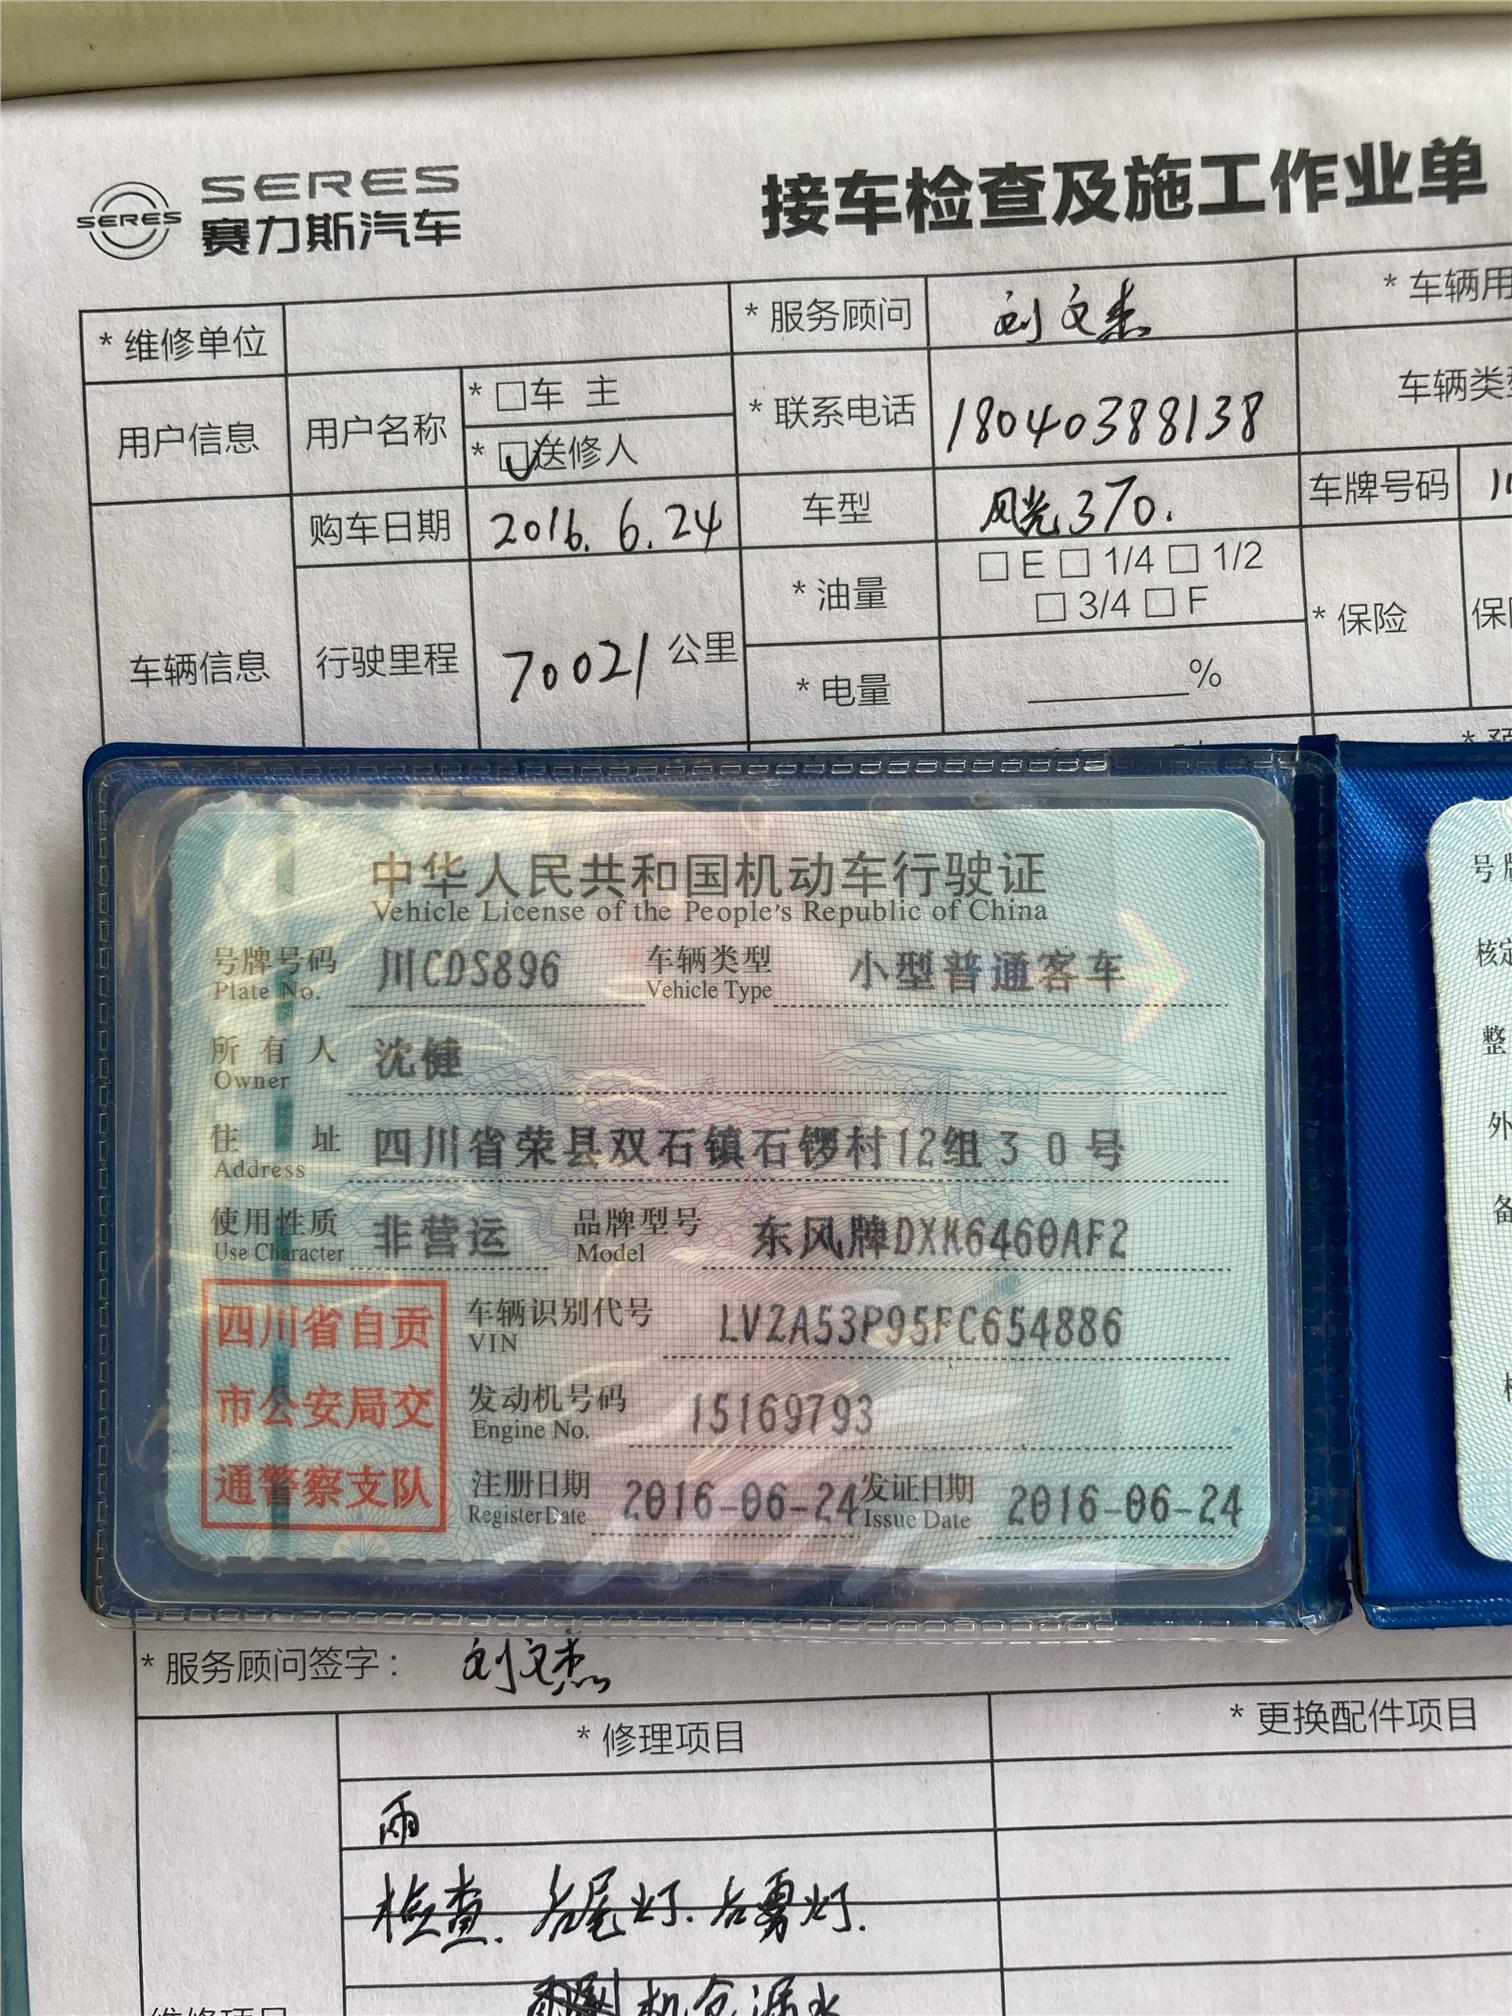 SERES
SERES
赛力斯汽车
接车检查及施工作业单
* 维修单位
* 服务顾问 刘文杰
* 车辆用
用户信息 用户名称 * □车 主
* □送修人
* 联系电话 18040388138
车辆类
购车日期 2016. 6. 24 车型 风光370. 车牌号码
车辆信息 行驶里程 70021 公里
* 油量 □ E □ 1/4 □ 1/2
□ 3/4 □ F
* 保险
* 电量 %
中华人民共和国机动车行驶证
Vehicle License of the People's Republic of China
号牌号码 川CDS896 车辆类型 小型普通客车
Plate No. Vehicle Type
所有人 沈健
Owner
住址 四川省荣县双石镇石锣村12组30号
Address
使用性质 非营运 品牌型号 东风牌DXK6460AF2
Use Character Model
四川省自贡
市公安局交
通警察支队
车辆识别代号 LVZA53P95FC654886
VIN
发动机号码 15169793
Engine No.
注册日期 2016-06-24 发证日期 2016-06-24
Register Date Issue Date
号
核定
整
外
备
* 服务顾问签字： 刘文杰
* 修理项目 * 更换配件项目
雨
检查. 右尾灯. 右雾灯.
机仓漏水
维修项目